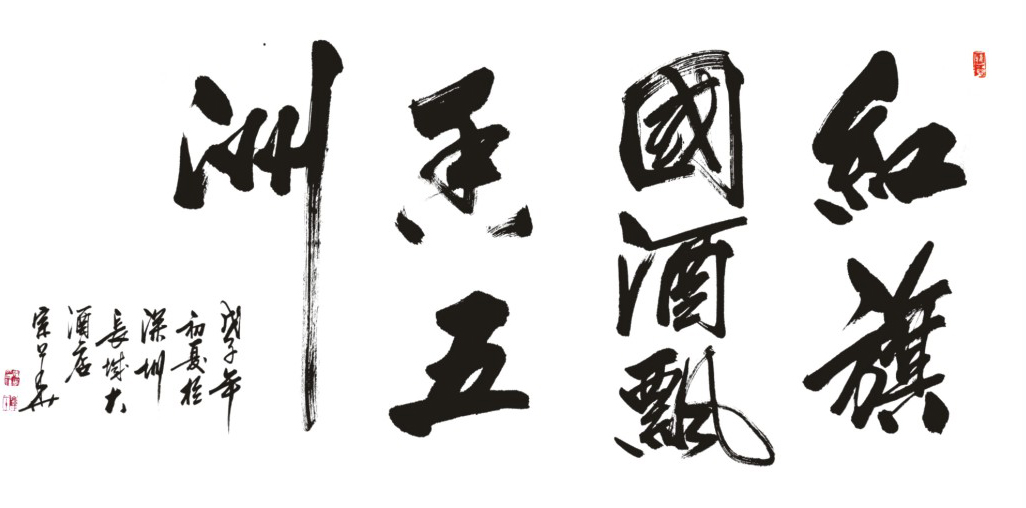 紅旗
國酒飄
香五
洲
戊子年
初夏於
深圳
長城大
酒店